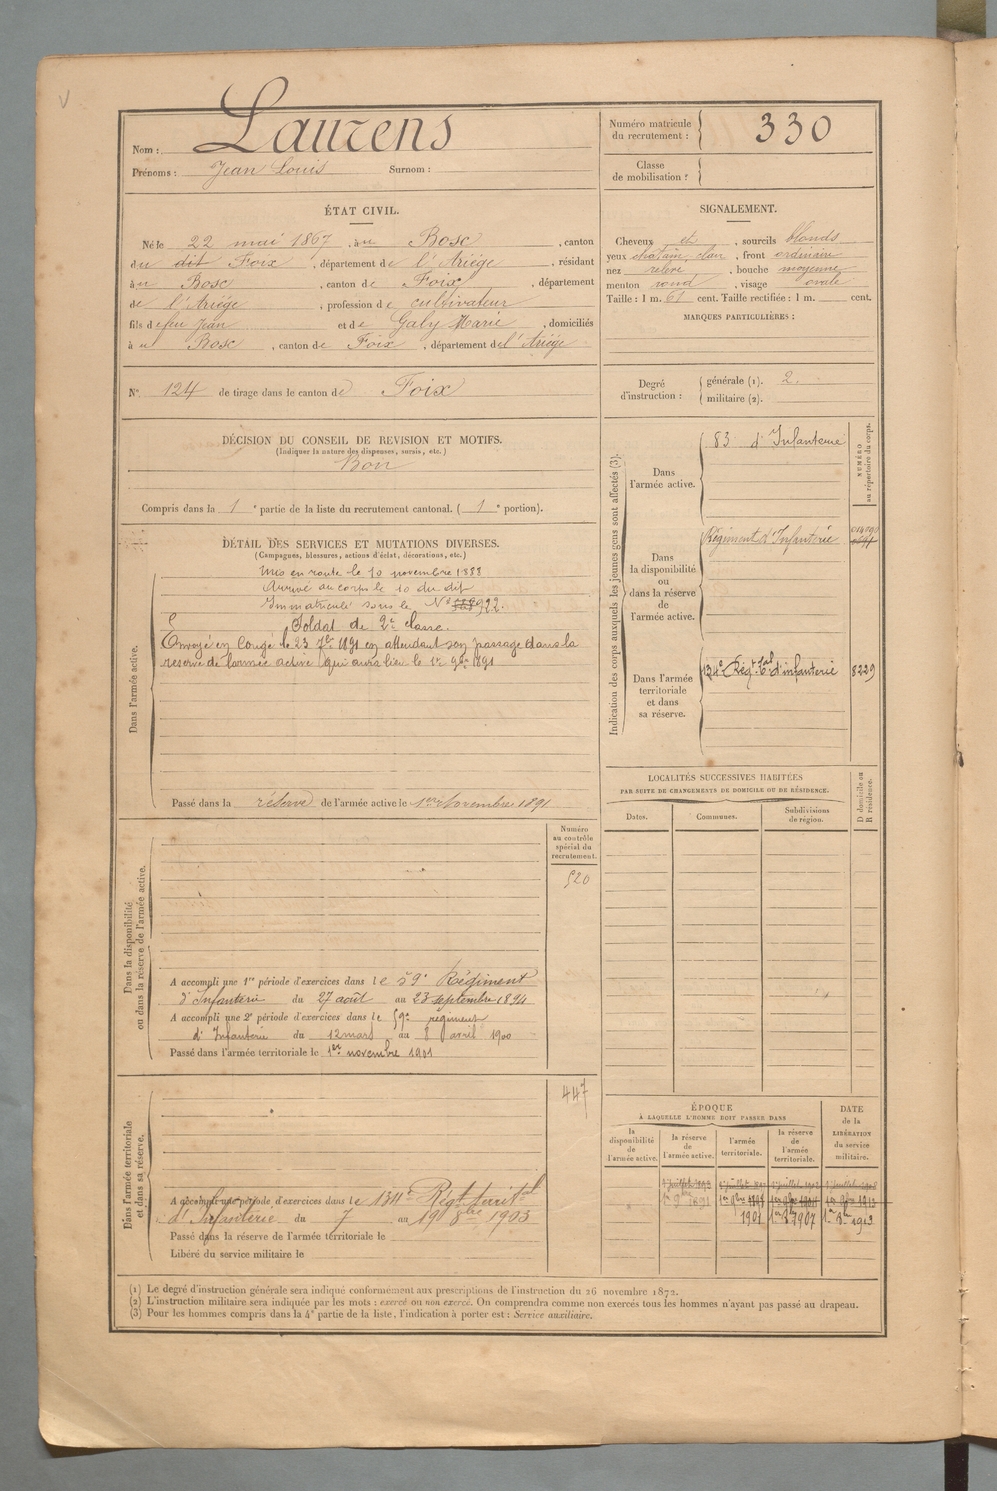 Nom : Laurens
Prénoms : Jean Louis Surnom :
Numéro matricule du recrutement : 330
Classe de mobilisation :
ÉTAT CIVIL.
Né le 22 mai 1867, à u Bosc, canton
du dit Foix, département de l'Ariège, résidant
à u Bosc, canton de Foix, département
de l'Ariège, profession de cultivateur
fils de feu Jean et de Galy Marie, domiciliés
à u Bosc, canton de Foix, département de l'Ariège
SIGNALEMENT.
Cheveux et, sourcils blonds
yeux chatain clair, front ordinaire
nez relevé, bouche moyenne
menton rond, visage ovale
Taille : 1 m. 61 cent. Taille rectifiée : 1 m. cent.
MARQUES PARTICULIÈRES :
N° 124 de tirage dans le canton de Foix
Degré d'instruction : générale (1). 2.
militaire (2).
DÉCISION DU CONSEIL DE REVISION ET MOTIFS.
(Indiquer la nature des dispenses, sursis, etc.)
Bon
Compris dans la 1e partie de la liste du recrutement cantonal. (1e portion).
DÉTAIL DES SERVICES ET MUTATIONS DIVERSES.
(Campagnes, blessures, actions d'éclat, décorations, etc.)
Dans l'armée active.
Mis en route le 10 novembre 1888
Arrivé au corps le 10 du dit
Immatriculé sous le N° 922.
Soldat de 2e classe.
Envoyé en Congé le 23 7bre 1891 en attendant son passage dans la
réserve de l'armée active qui aura lieu le 1er 9bre 1891
Passé dans la réserve de l'armée active le 1er Novembre 1891
Indication des corps auxquels les jeunes gens sont affectés (3).
NUMÉRO au répertoire du corps.
Dans l'armée active.
83 d'Infanterie
Dans la disponibilité ou dans la réserve de l'armée active.
Régiment d'Infanterie
Dans l'armée territoriale et dans sa réserve.
134e Régt tal d'infanterie 8229
LOCALITÉS SUCCESSIVES HABITÉES
PAR SUITE DE CHANGEMENTS DE DOMICILE OU DE RÉSIDENCE.
Dates. Communes. Subdivisions de région. D domicile ou R résidence.
Dans la disponibilité ou dans la réserve de l'armée active.
Numéro au contrôle spécial du recrutement.
520
A accompli une 1re période d'exercices dans le 59e Régiment
d'Infanterie du 27 août au 23 septembre 1894
A accompli une 2e période d'exercices dans le 59e régiment
d'Infanterie du 12 mars au 8 avril 1900
Passé dans l'armée territoriale le 1er novembre 1901
Dans l'armée territoriale et dans sa réserve.
447
A accompli une période d'exercices dans le 134e Régt territal
d'Infanterie du 7 au 19 8bre 1903
Passé dans la réserve de l'armée territoriale le
Libéré du service militaire le
ÉPOQUE
À LAQUELLE L'HOMME DOIT PASSER DANS
la disponibilité de l'armée active. la réserve de l'armée active. l'armée territoriale. la réserve de l'armée territoriale. DATE de la LIBÉRATION du service militaire.
1er 9bre 1891 1er 9bre 1897
1901 1er 8bre 1907 1er 8bre 1913
(1) Le degré d'instruction générale sera indiqué conformément aux prescriptions de l'instruction du 26 novembre 1872.
(2) L'instruction militaire sera indiquée par les mots : exercé ou non exercé. On comprendra comme non exercés tous les hommes n'ayant pas passé au drapeau.
(3) Pour les hommes compris dans la 4e partie de la liste, l'indication à porter est : Service auxiliaire.